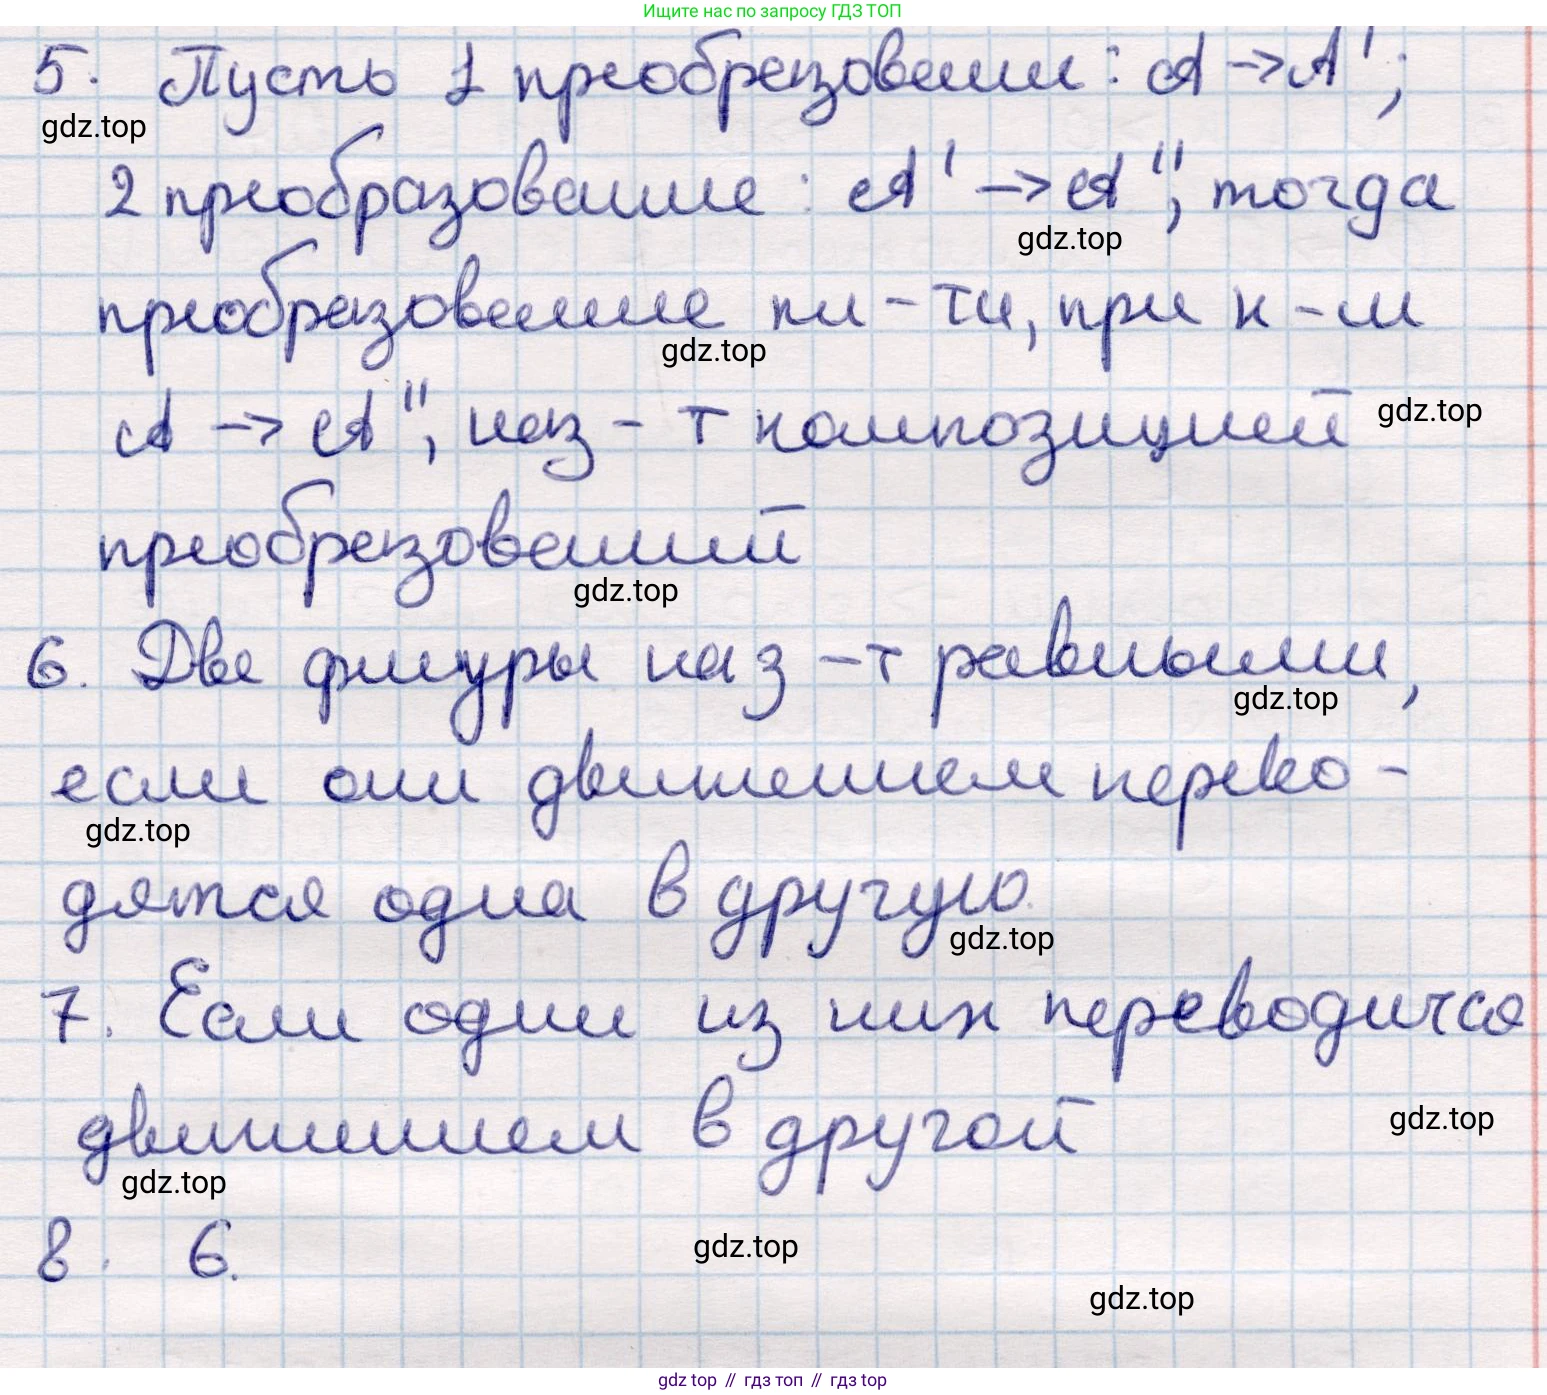 Ищите нас по запросу ГДЗ ТОП
5. Пусть 1 преобразовании: A → A';
gdz.top
2 преобразование: A' → A'', тогда
gdz.top
преобразование пл-ти, при к-м
gdz.top
A → A'', наз-т композицией
gdz.top
преобразований
gdz.top
6. Две фигуры наз-т равными,
gdz.top
если они движением перево-
gdz.top
дятся одна в другую.
gdz.top
7. Если один из них переводится
движением в другой
gdz.top
gdz.top
8. 6.
gdz.top
gdz.top
gdz top // гдз топ // гдз top